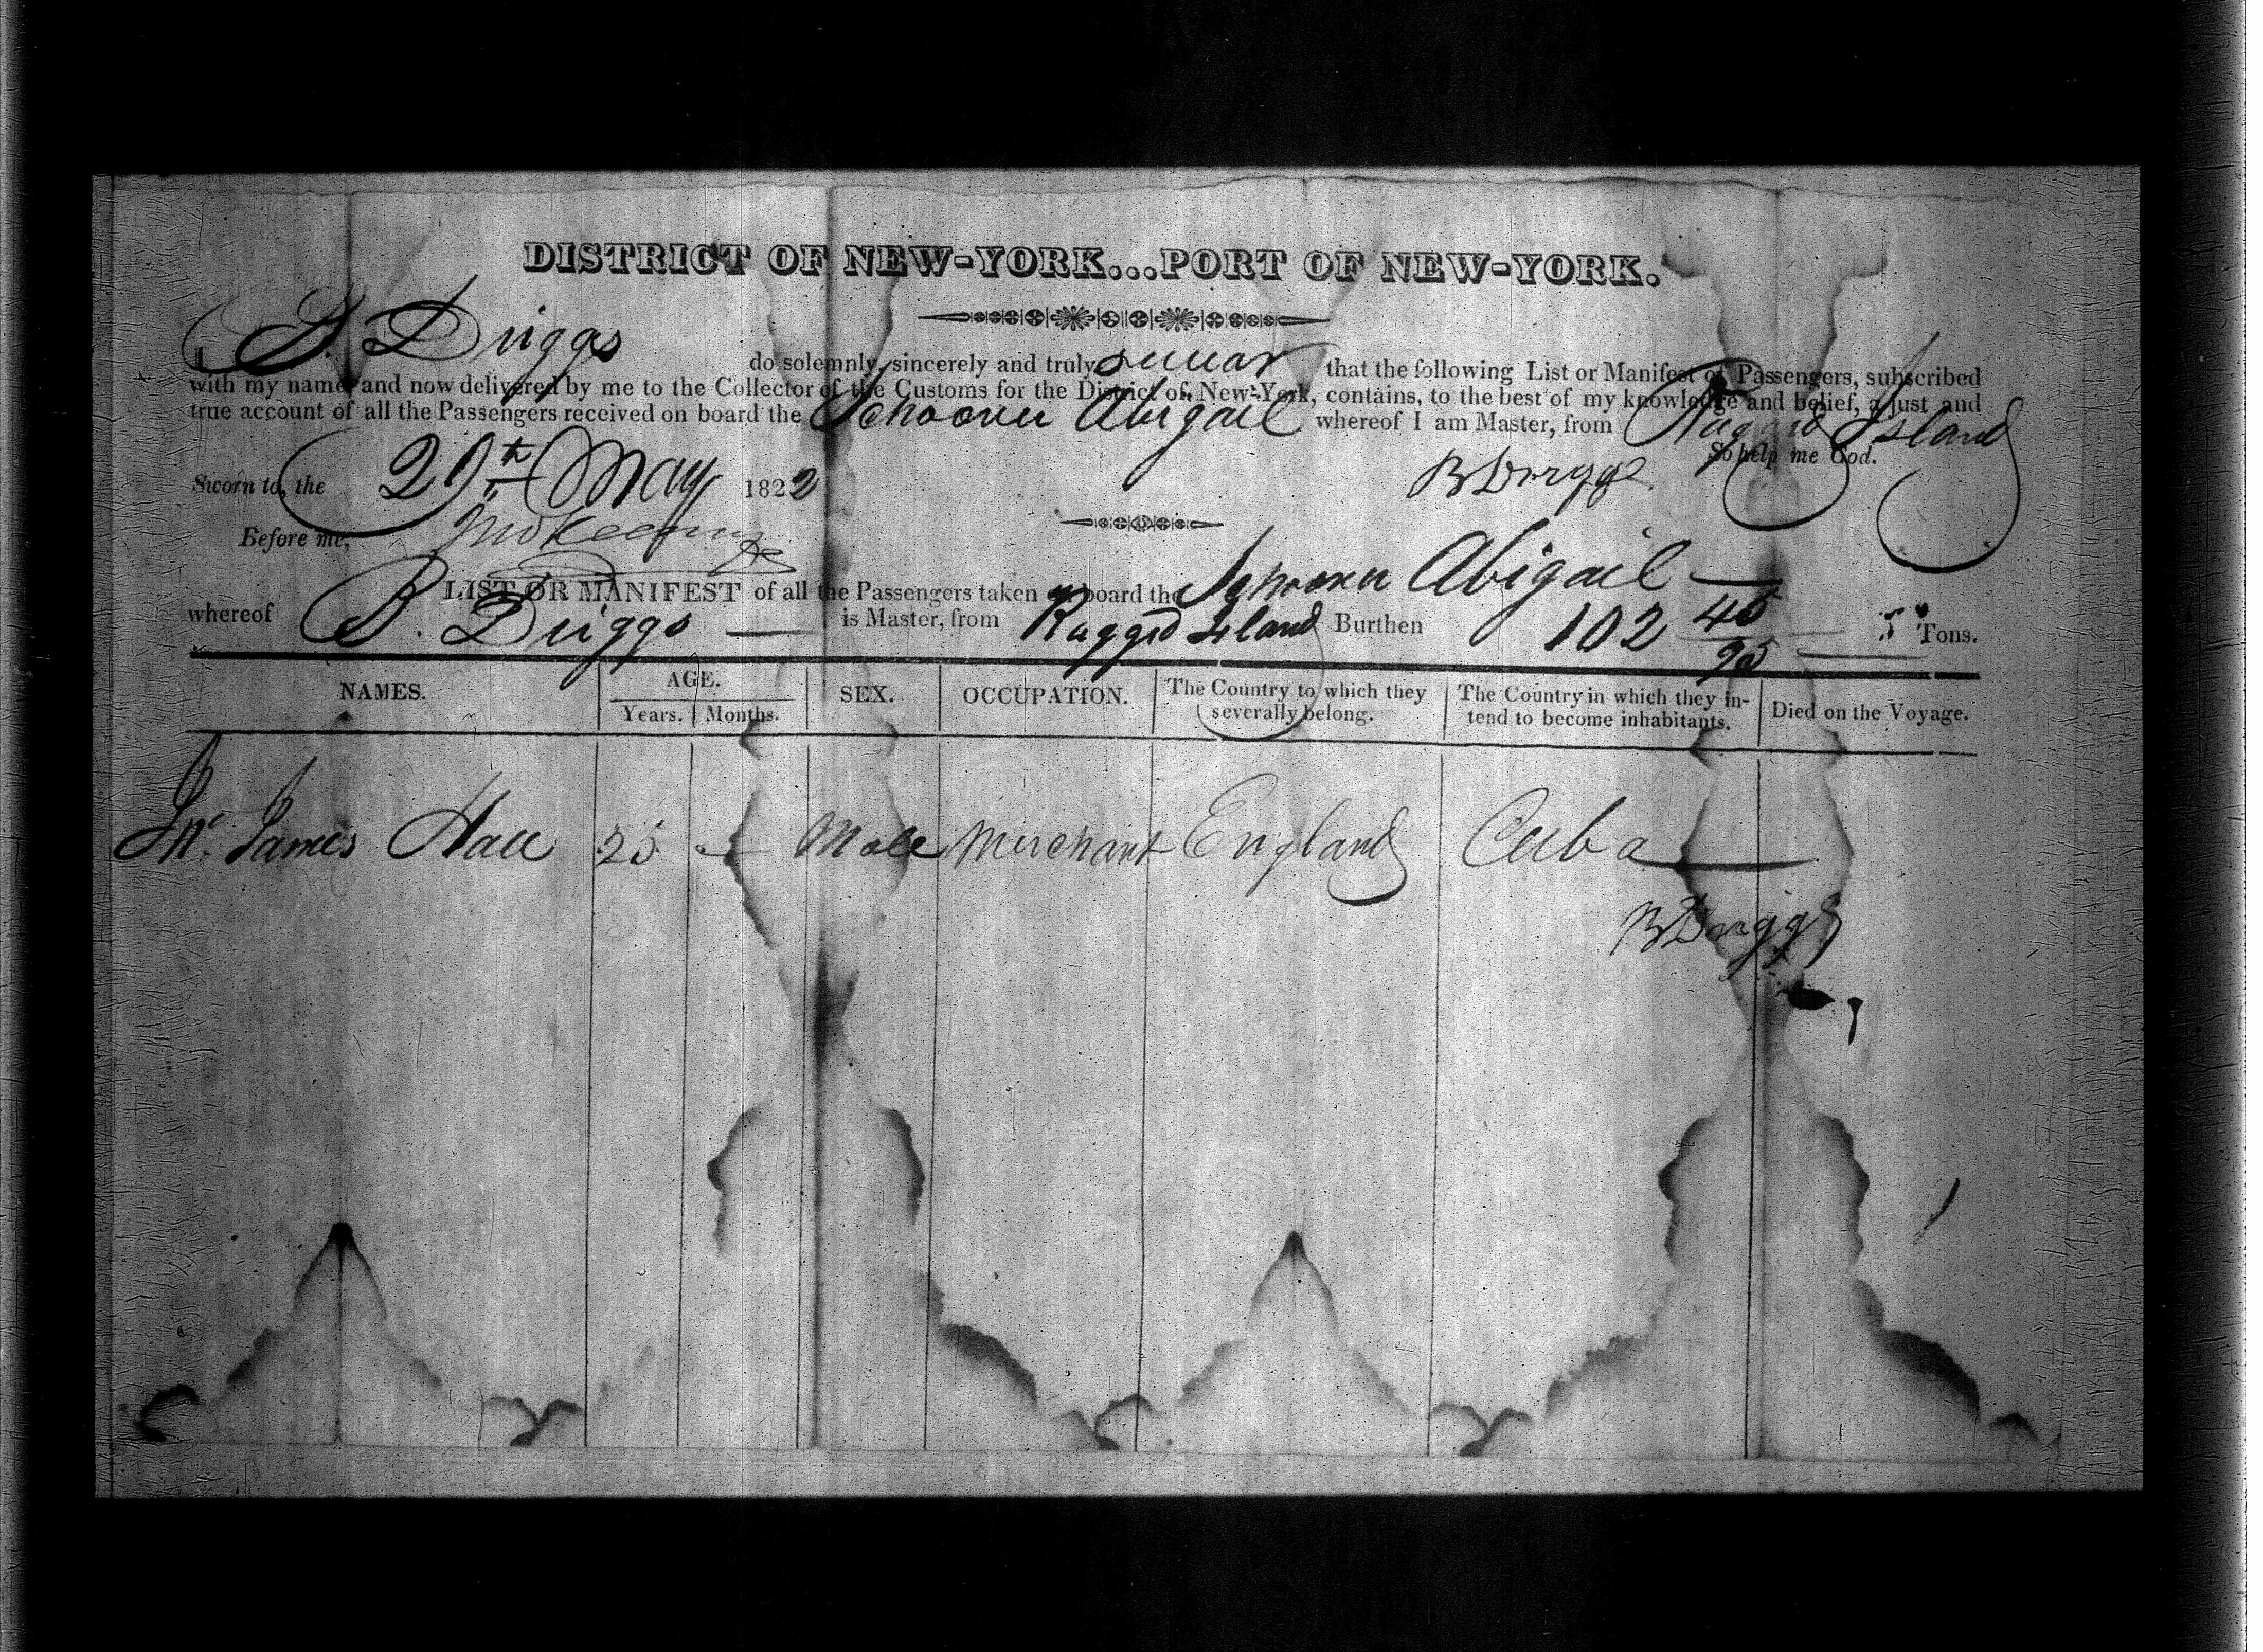 DISTRICT OF NEW-YORK...PORT OF NEW-YORK.
B. Driggs do solemnly, sincerely and truly swear that the following List or Manifest of Passengers, subscribed
with my name, and now delivered by me to the Collector of the Customs for the District of New-York, contains, to the best of my knowledge and belief, a just and
true account of all the Passengers received on board the Schooner Abigail whereof I am Master, from Ragged Island
So help me God.
Sworn to, the 29th May 1822 B Driggs
Before me,
LIST OR MANIFEST of all the Passengers taken on board the Schooner Abigail
whereof B. Driggs is Master, from Ragged Island Burthen 102 45/95 Tons.
NAMES. AGE. SEX. OCCUPATION. The Country to which they severally belong. The Country in which they intend to become inhabitants. Died on the Voyage.
Years. Months.
James Hall 25 Male Merchant England Cuba
B Driggs